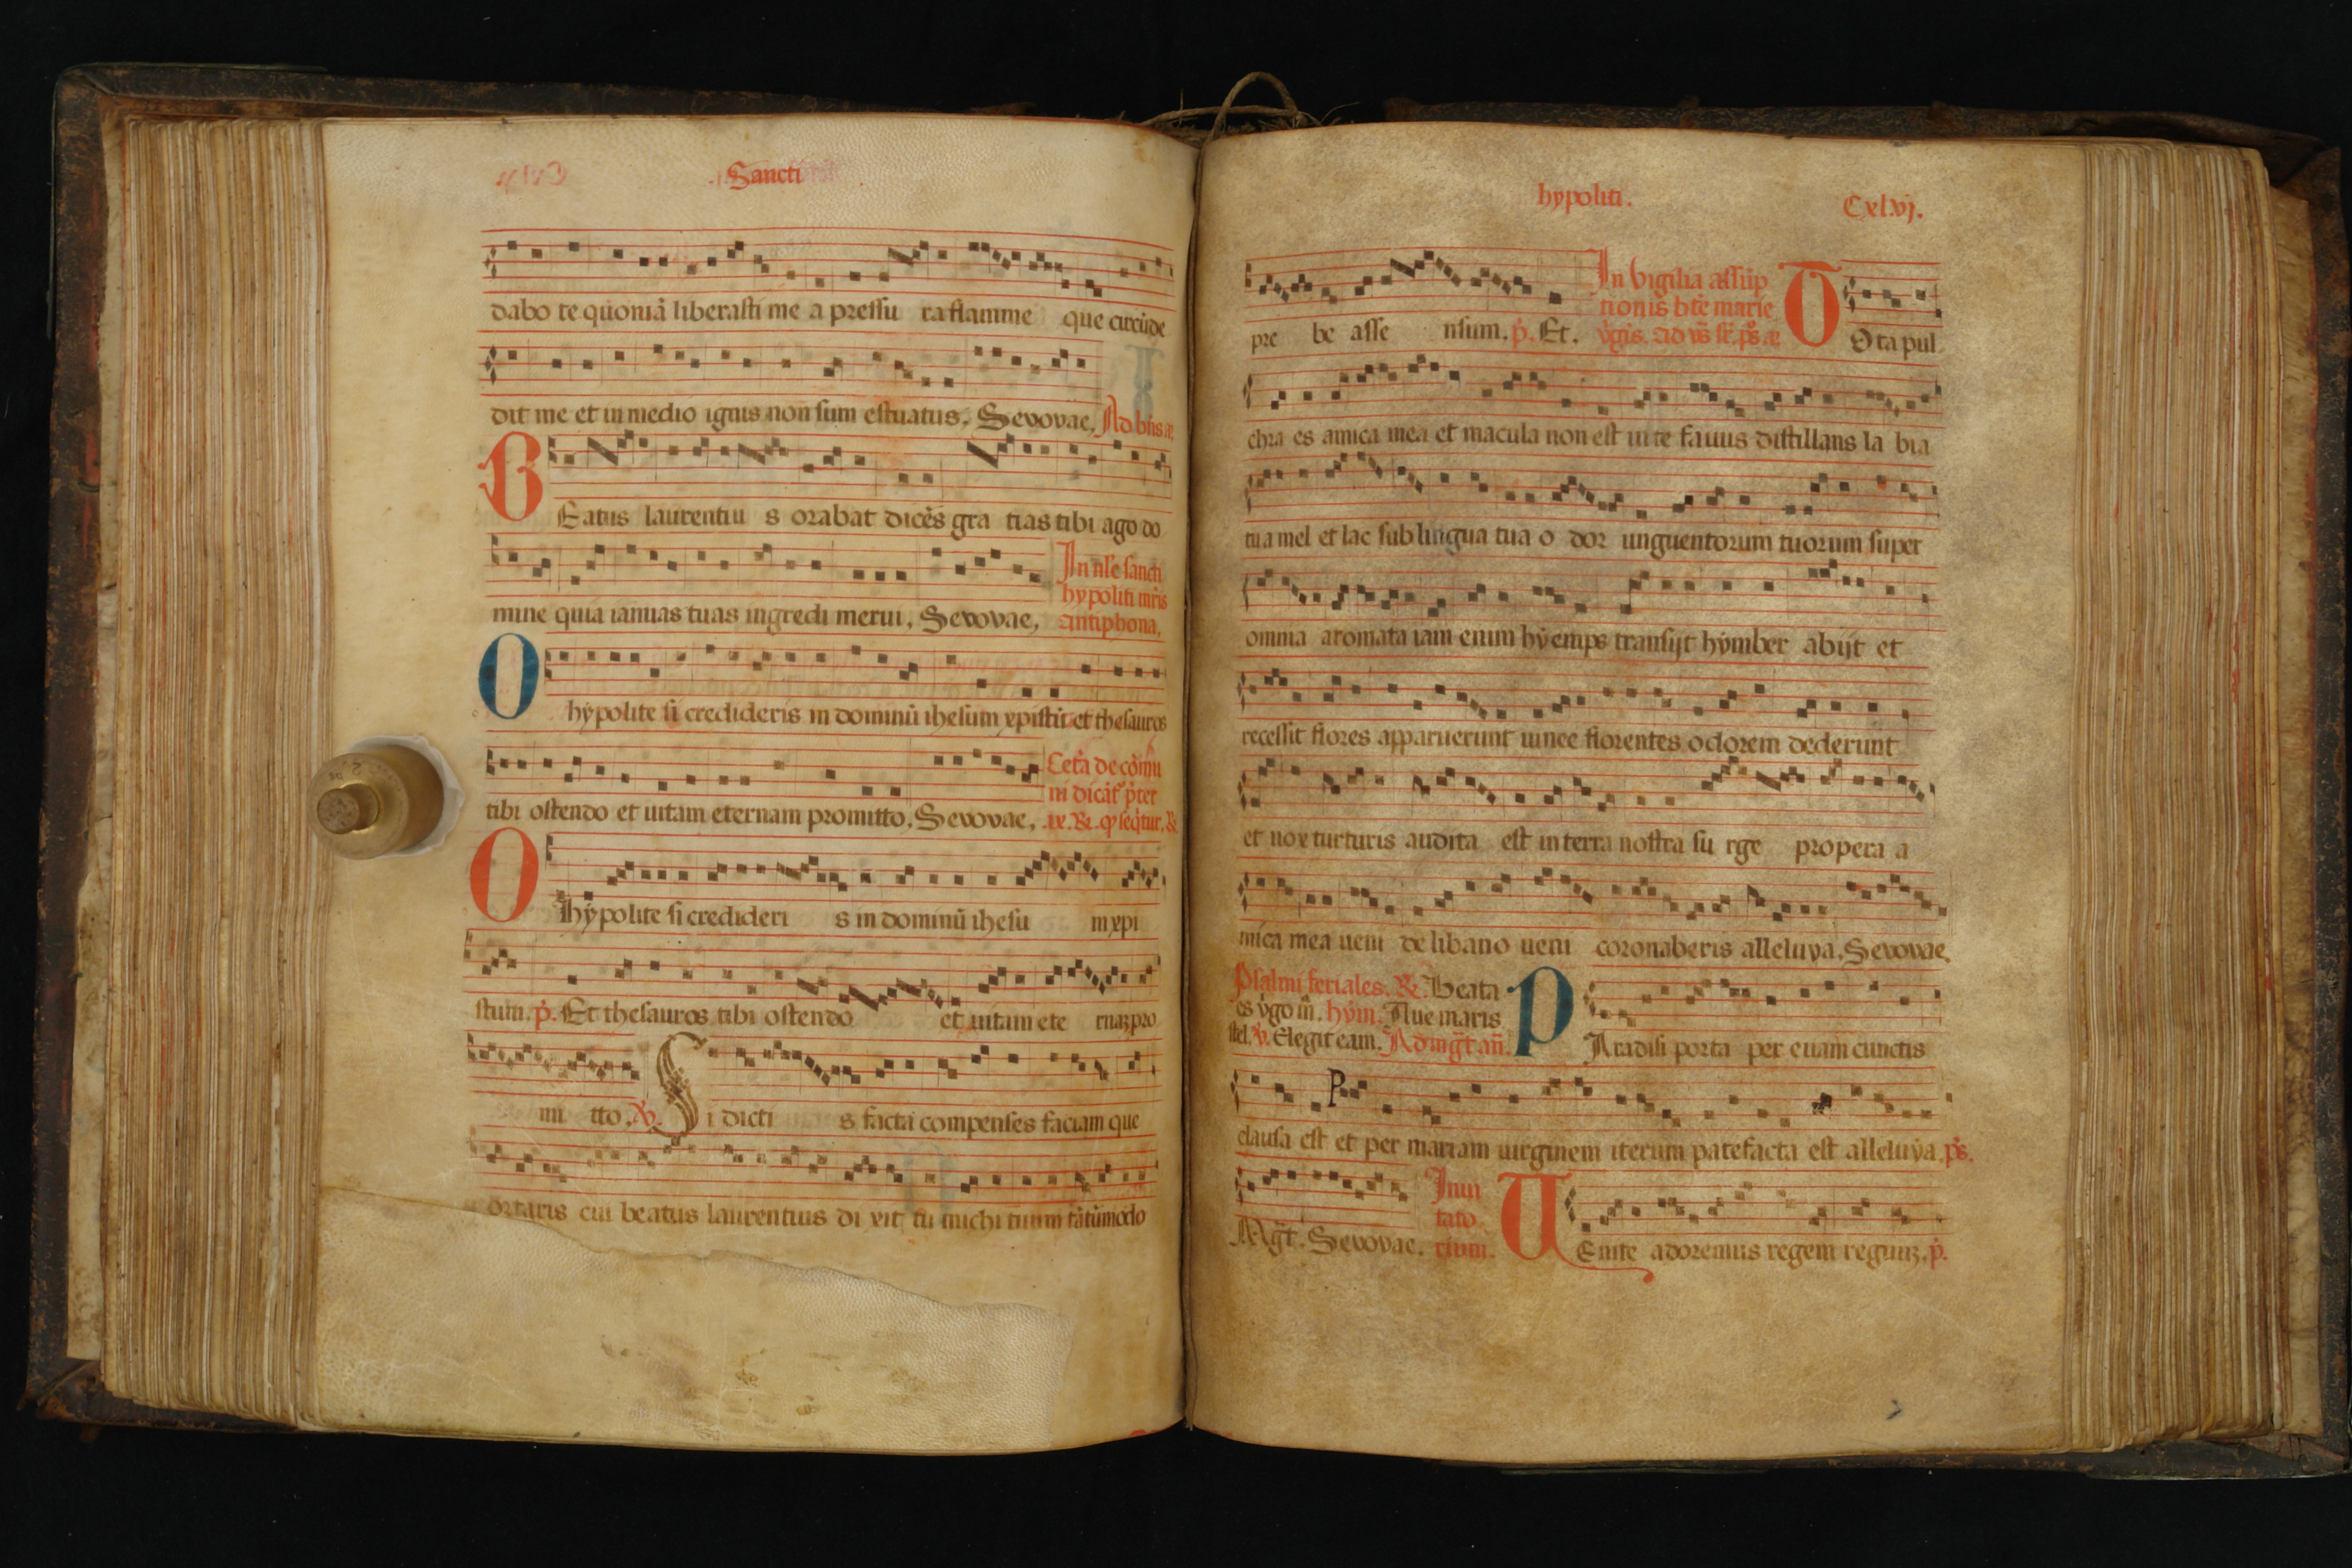 Sancti
dabo te quoniã liberasti me a pressu ra flamme que circũde
dit me et in medio ignis non sum estuatus. Sevovae. Ad bñs
B Eatus laurentiu s orabat dicẽs gra tias tibi ago do
In nł'e sancti
hypoliti mr̃is
mine quia ianuas tuas ingredi merui, Sevovae, antiphona,
O hẏpolite si credideris in dominũ ihesum xpistũ et thesauros
Cet'a de cõmu
ni dicãt p'ter
tibi ostendo et uitam eternam promitto. Sevovae, .ix. R. q' seq̃tur.
O hẏpolite si credideri s in dominũ ihesu m xpi
stum. p̃. Et thesauros tibi ostendo et uitam ete rnaꝫ pro
mi tto. V. S i dicti s facta compenses faciam que
ortaris cui beatus laurentius di xit tu michi tuum tãtũmodo
hypoliti. Cxl.vj.
In vigilia assũp
tionis btẽ marie
pre be asse nsum. p̃. Et. O O ta pul
chra es amica mea et macula non est in te fauus distillans la bia
tua mel et lac sub lingua tua o dor unguentorum tuorum super
omnia aromata iam enim hẏemps transijt hẏmber abijt et
recessit flores apparuerunt uinee florentes odorem dederunt
et uox turturis audita est in terra nostra su rge propera a
mica mea ueni de libano ueni coronaberis alleluya. Sevovae.
Psalmi feriales. R. Beata
es v̇go m̃. hẏm. Aue maris
stel. V. Elegit eam. Ad mg̃t añ.
P Aradisi porta per euam cunctis
clausa est et per mariam uirginem iterum patefacta est alleluẏa. p̃s.
Inui
tato
rium.
Mg̃t. Sevovae. U Enite adoremus regem regumꝫ. p̃.